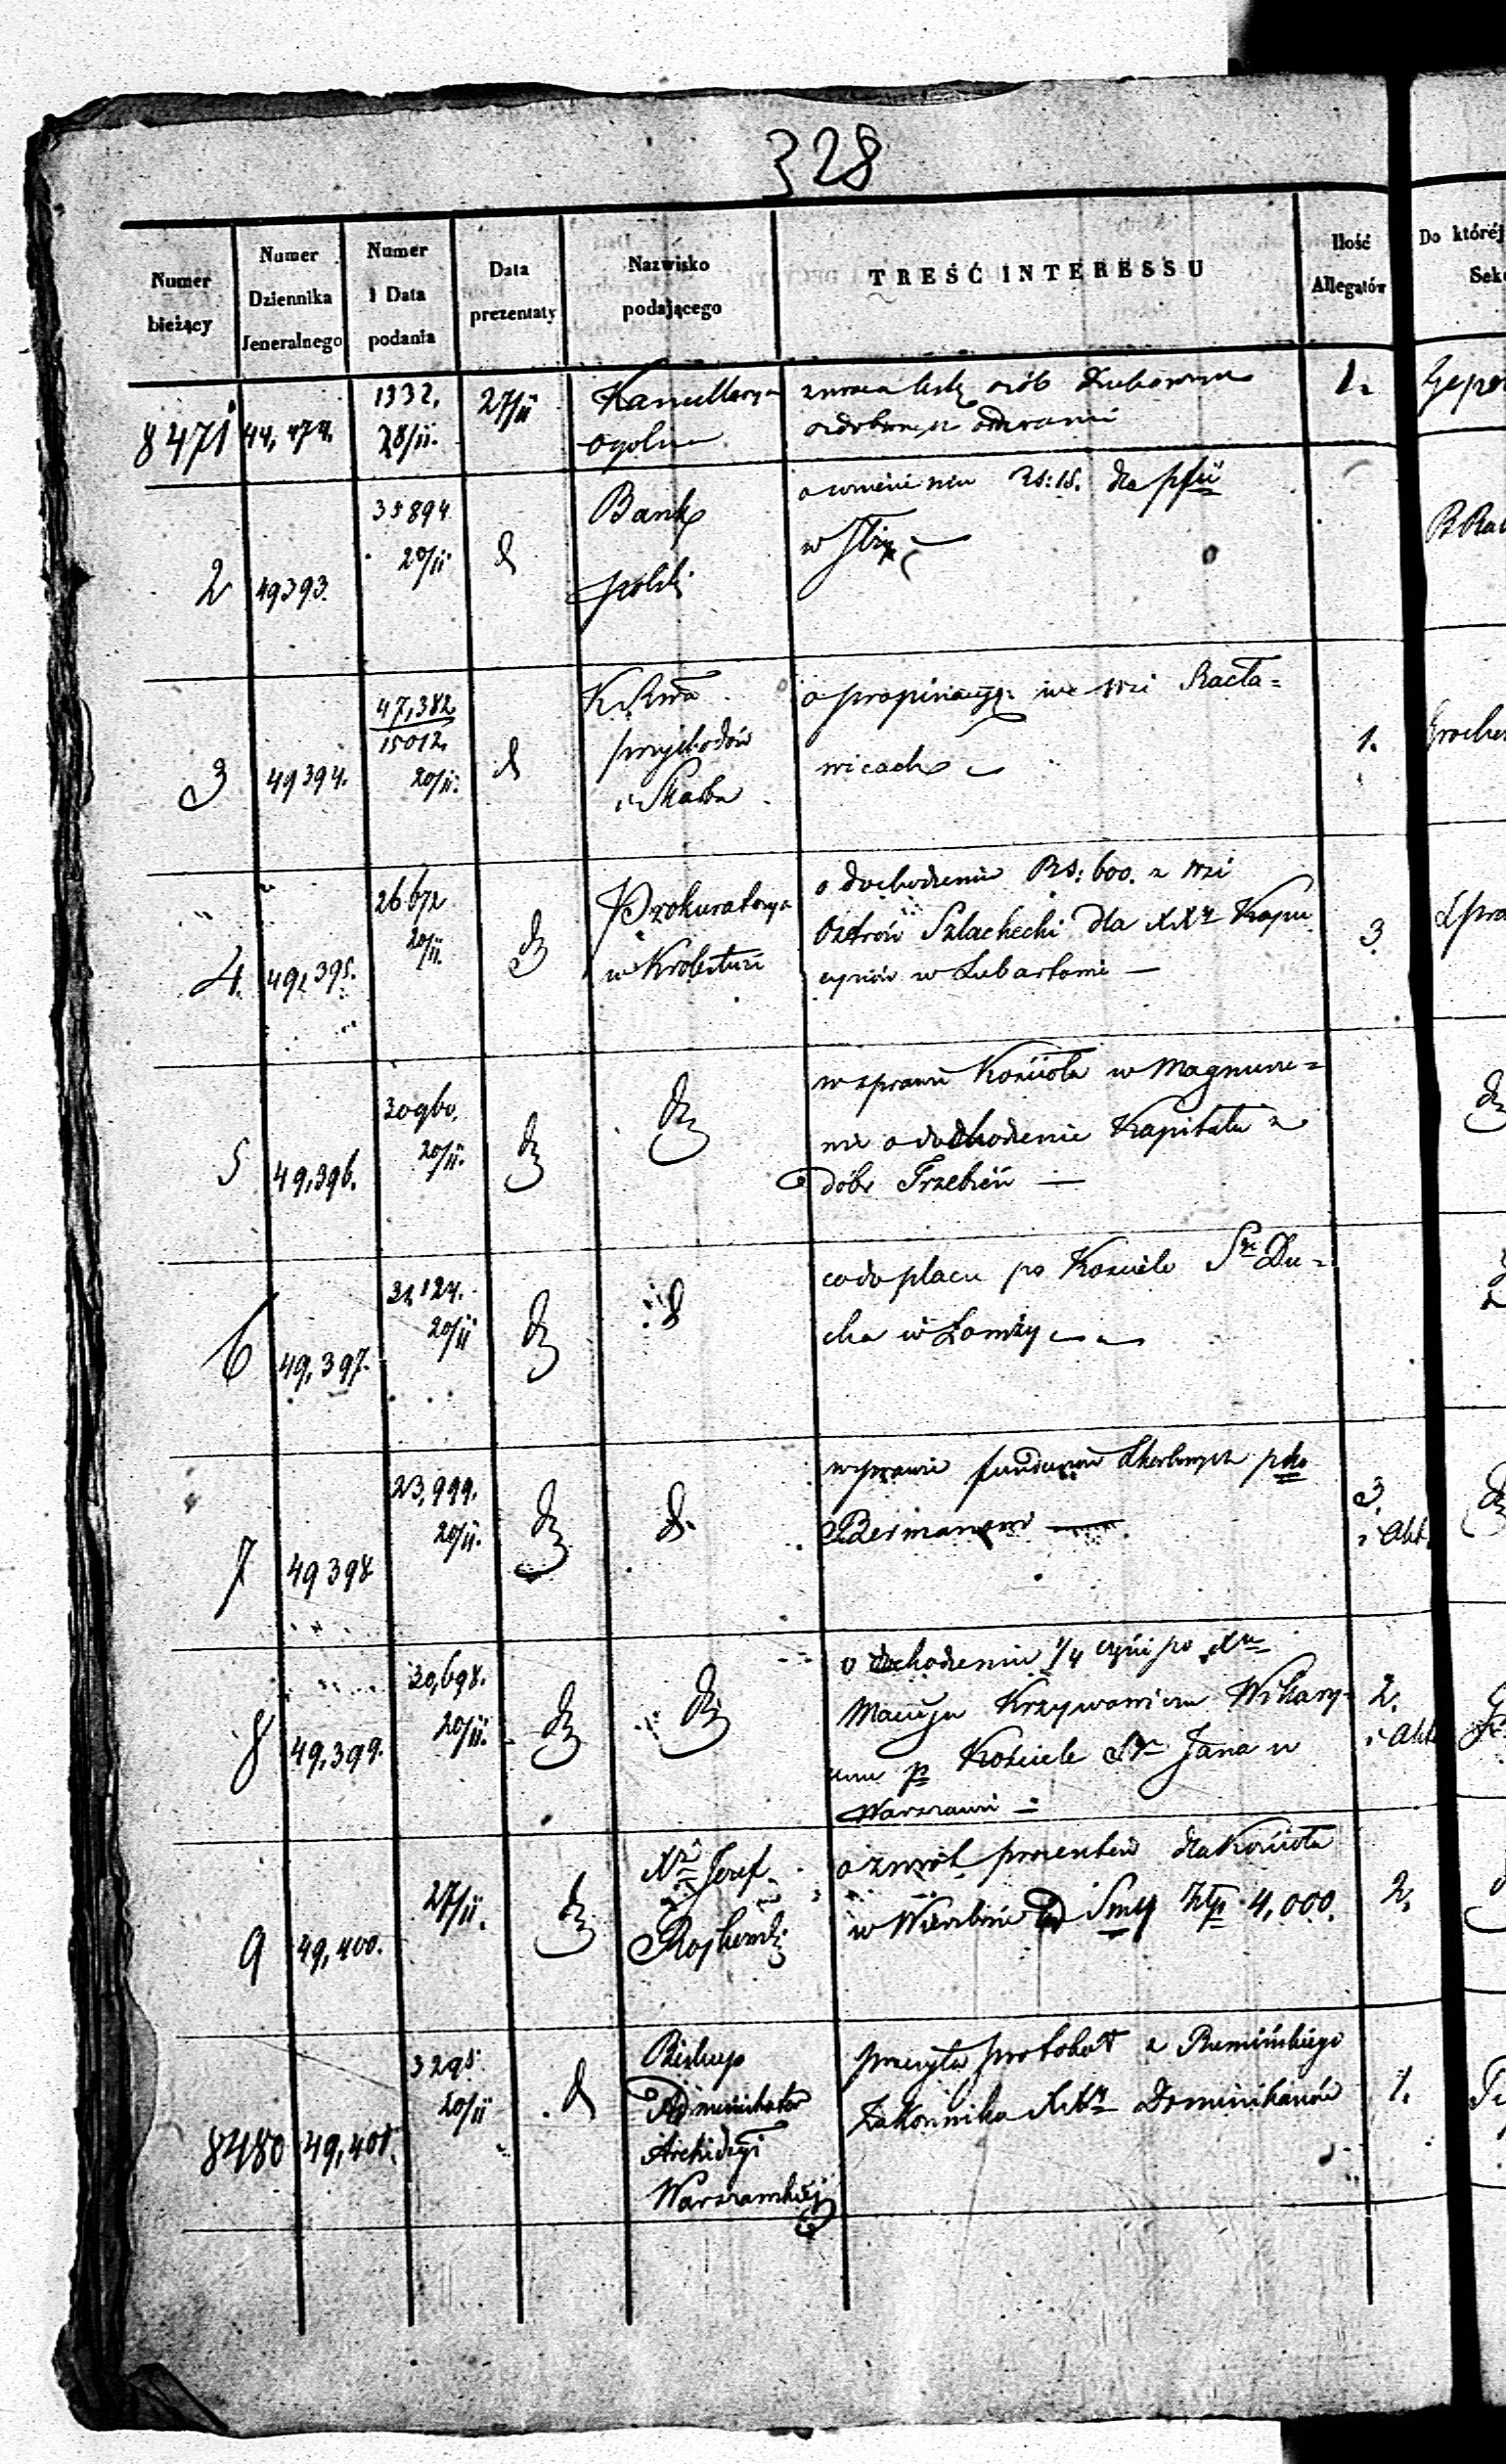 328
Numer bieżący
Numer Dziennika Jeneralnego
Numer i Data podania
Data prezentaty
Nazwisko podającego
TREŚĆ INTERESSU
Ilość Allegatów
Do któréj
8471 44,474. 1332. 28/11. 27/11 Kancellarya zwraca listę osób
ogólna ozdobionych orderami
1.
2 49393. 35894 20/11 d Bank Polski
Rs: 15. dla
w
3 49394. 47,382 15012. 20/11. d K. Rwa przychodów i Skarbu
o propinacyą we wsi Racła=
wicach
1.
4. 49,395. 26672 20/11. Prokuratorya w Królestwie
o dochodzenie Rs: 600. z wsi
Ostrów Szlachecki dla XXy Kapu
cynów w Lubartowie —
3
5 49,396. 30960. 20/11.
w sprawie Kościoła w Magnusze=
wie o dochodzenie Kapitału z
dóbr Trzebień —
6 49,397. 31,124. 20/11 d
co do placu po Kościele Sgo Du=
cha w Łomży
7 49398 23,999. 20/11. d.
w sprawie funduszów
Bermanem —
3.
i Akt.
8 49,399. 30,698. 20/11.
o dochodzenie 1/4 części po Xu
Macieju Krzywowiczu Wikary=
uszu p Kościele Sgo Jana w
Warszawie =
2.
i Akt
9 49,400. 27/11. Xz Józef
o zwrot procentów dla Kościoła
w Wierzbnie od Smy Złp 4,000.
2.
8480 49,401. 3298. 20/11 d Biskup
Administrator
Archidyi
Warszawskiéj
przesyła protokół z Rumińskiego
Zakonnika XXy Dominikanów
1.